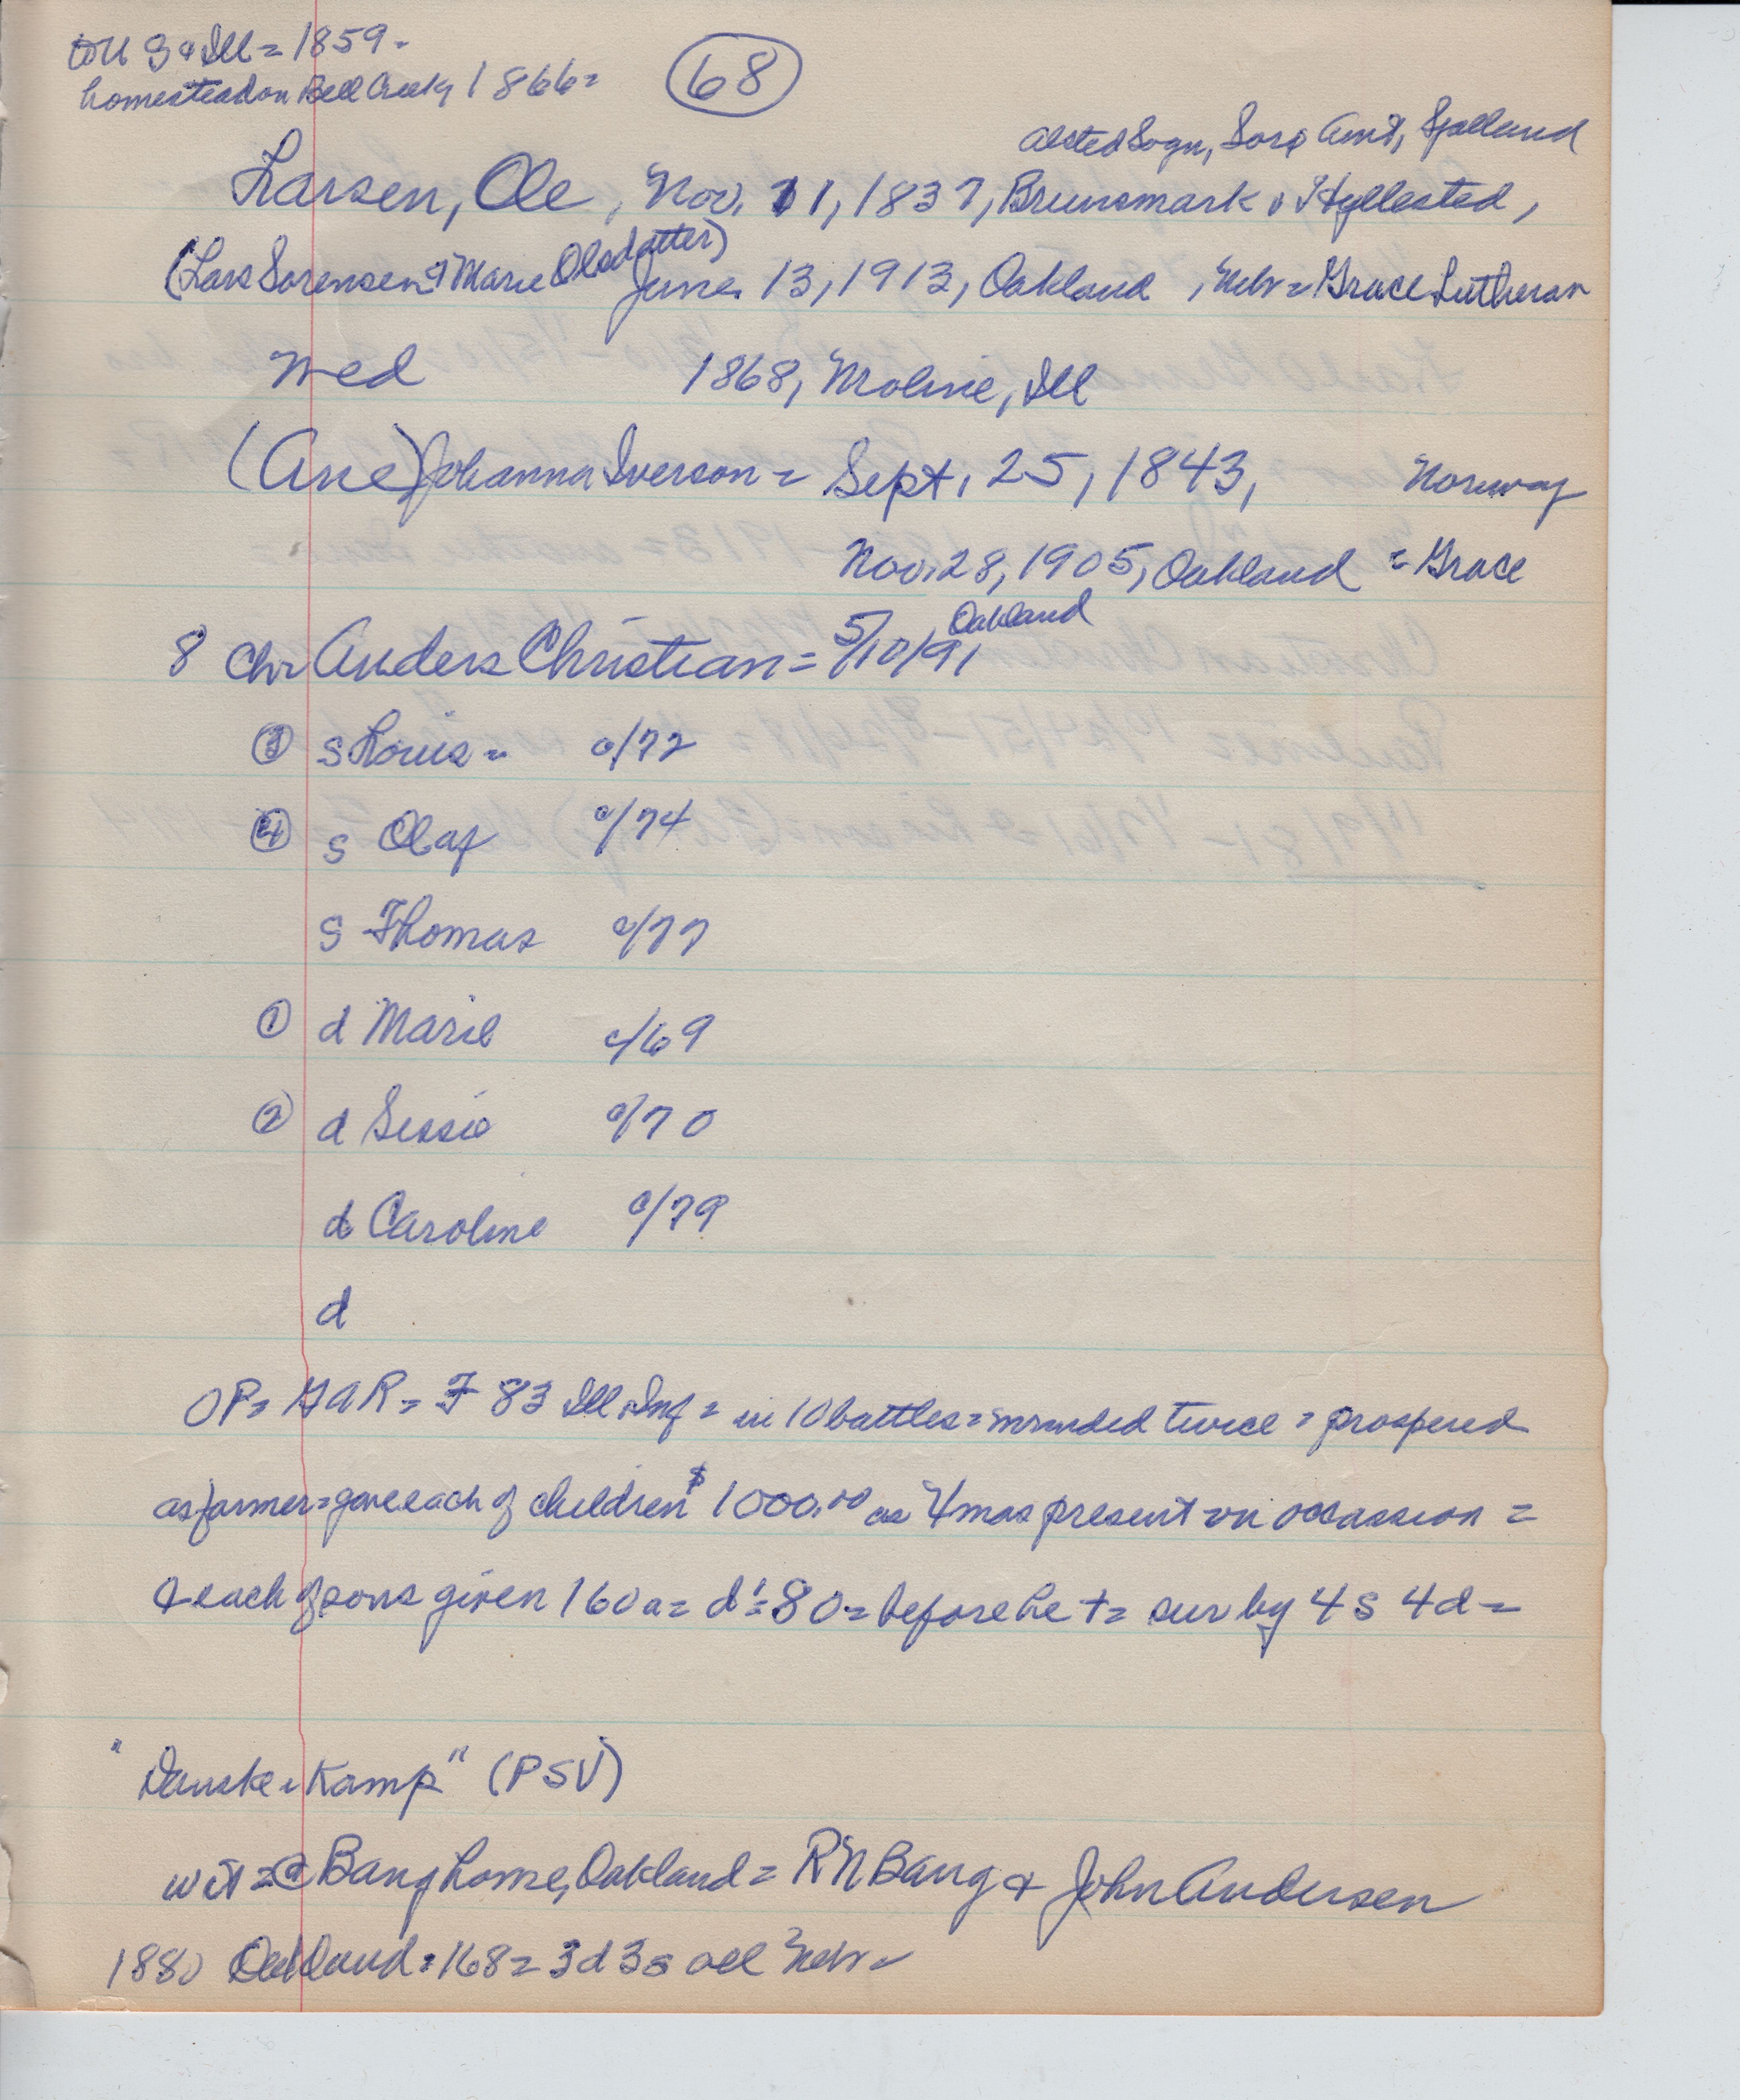 to US & Ill = 1859 -
homestead on Bell Creek, 1866 =
68
Alsted Sogn, Sorø Amt, Sjelland
Larsen, Ole, Nov. 11, 1837, Brunsmark, Hyllested,
(Lars Sorensen & Marie Olsdatter) June 13, 1913, Oakland, Nebr = Grace Lutheran
wed 1868, Moline, Ill
(Ane) Johanna Iverson = Sept. 25, 1843, Norway
Nov. 28, 1905, Oakland = Grace
Oakland
8 chr Anders Christian = 5/10/91
③ s Louis = c/72
④ s Olaf c/74
s Thomas c/77
① d Marie c/69
② d Sessie c/70
d Caroline c/79
d
OP = GAR = F 83 Ill. Inf = in 10 battles = wounded twice = prospered
as farmer = gave each of children $1000.00 as Xmas present on occassion =
& each of sons given 160a = d's = 80 = before he + = sur by 4 s 4 d =
"Danske i Kamp" (PSV)
wit = @ Bang home, Oakland = RN Bang & John Andersen
1880 Oakland = 168 = 3d 3s all Nebr =